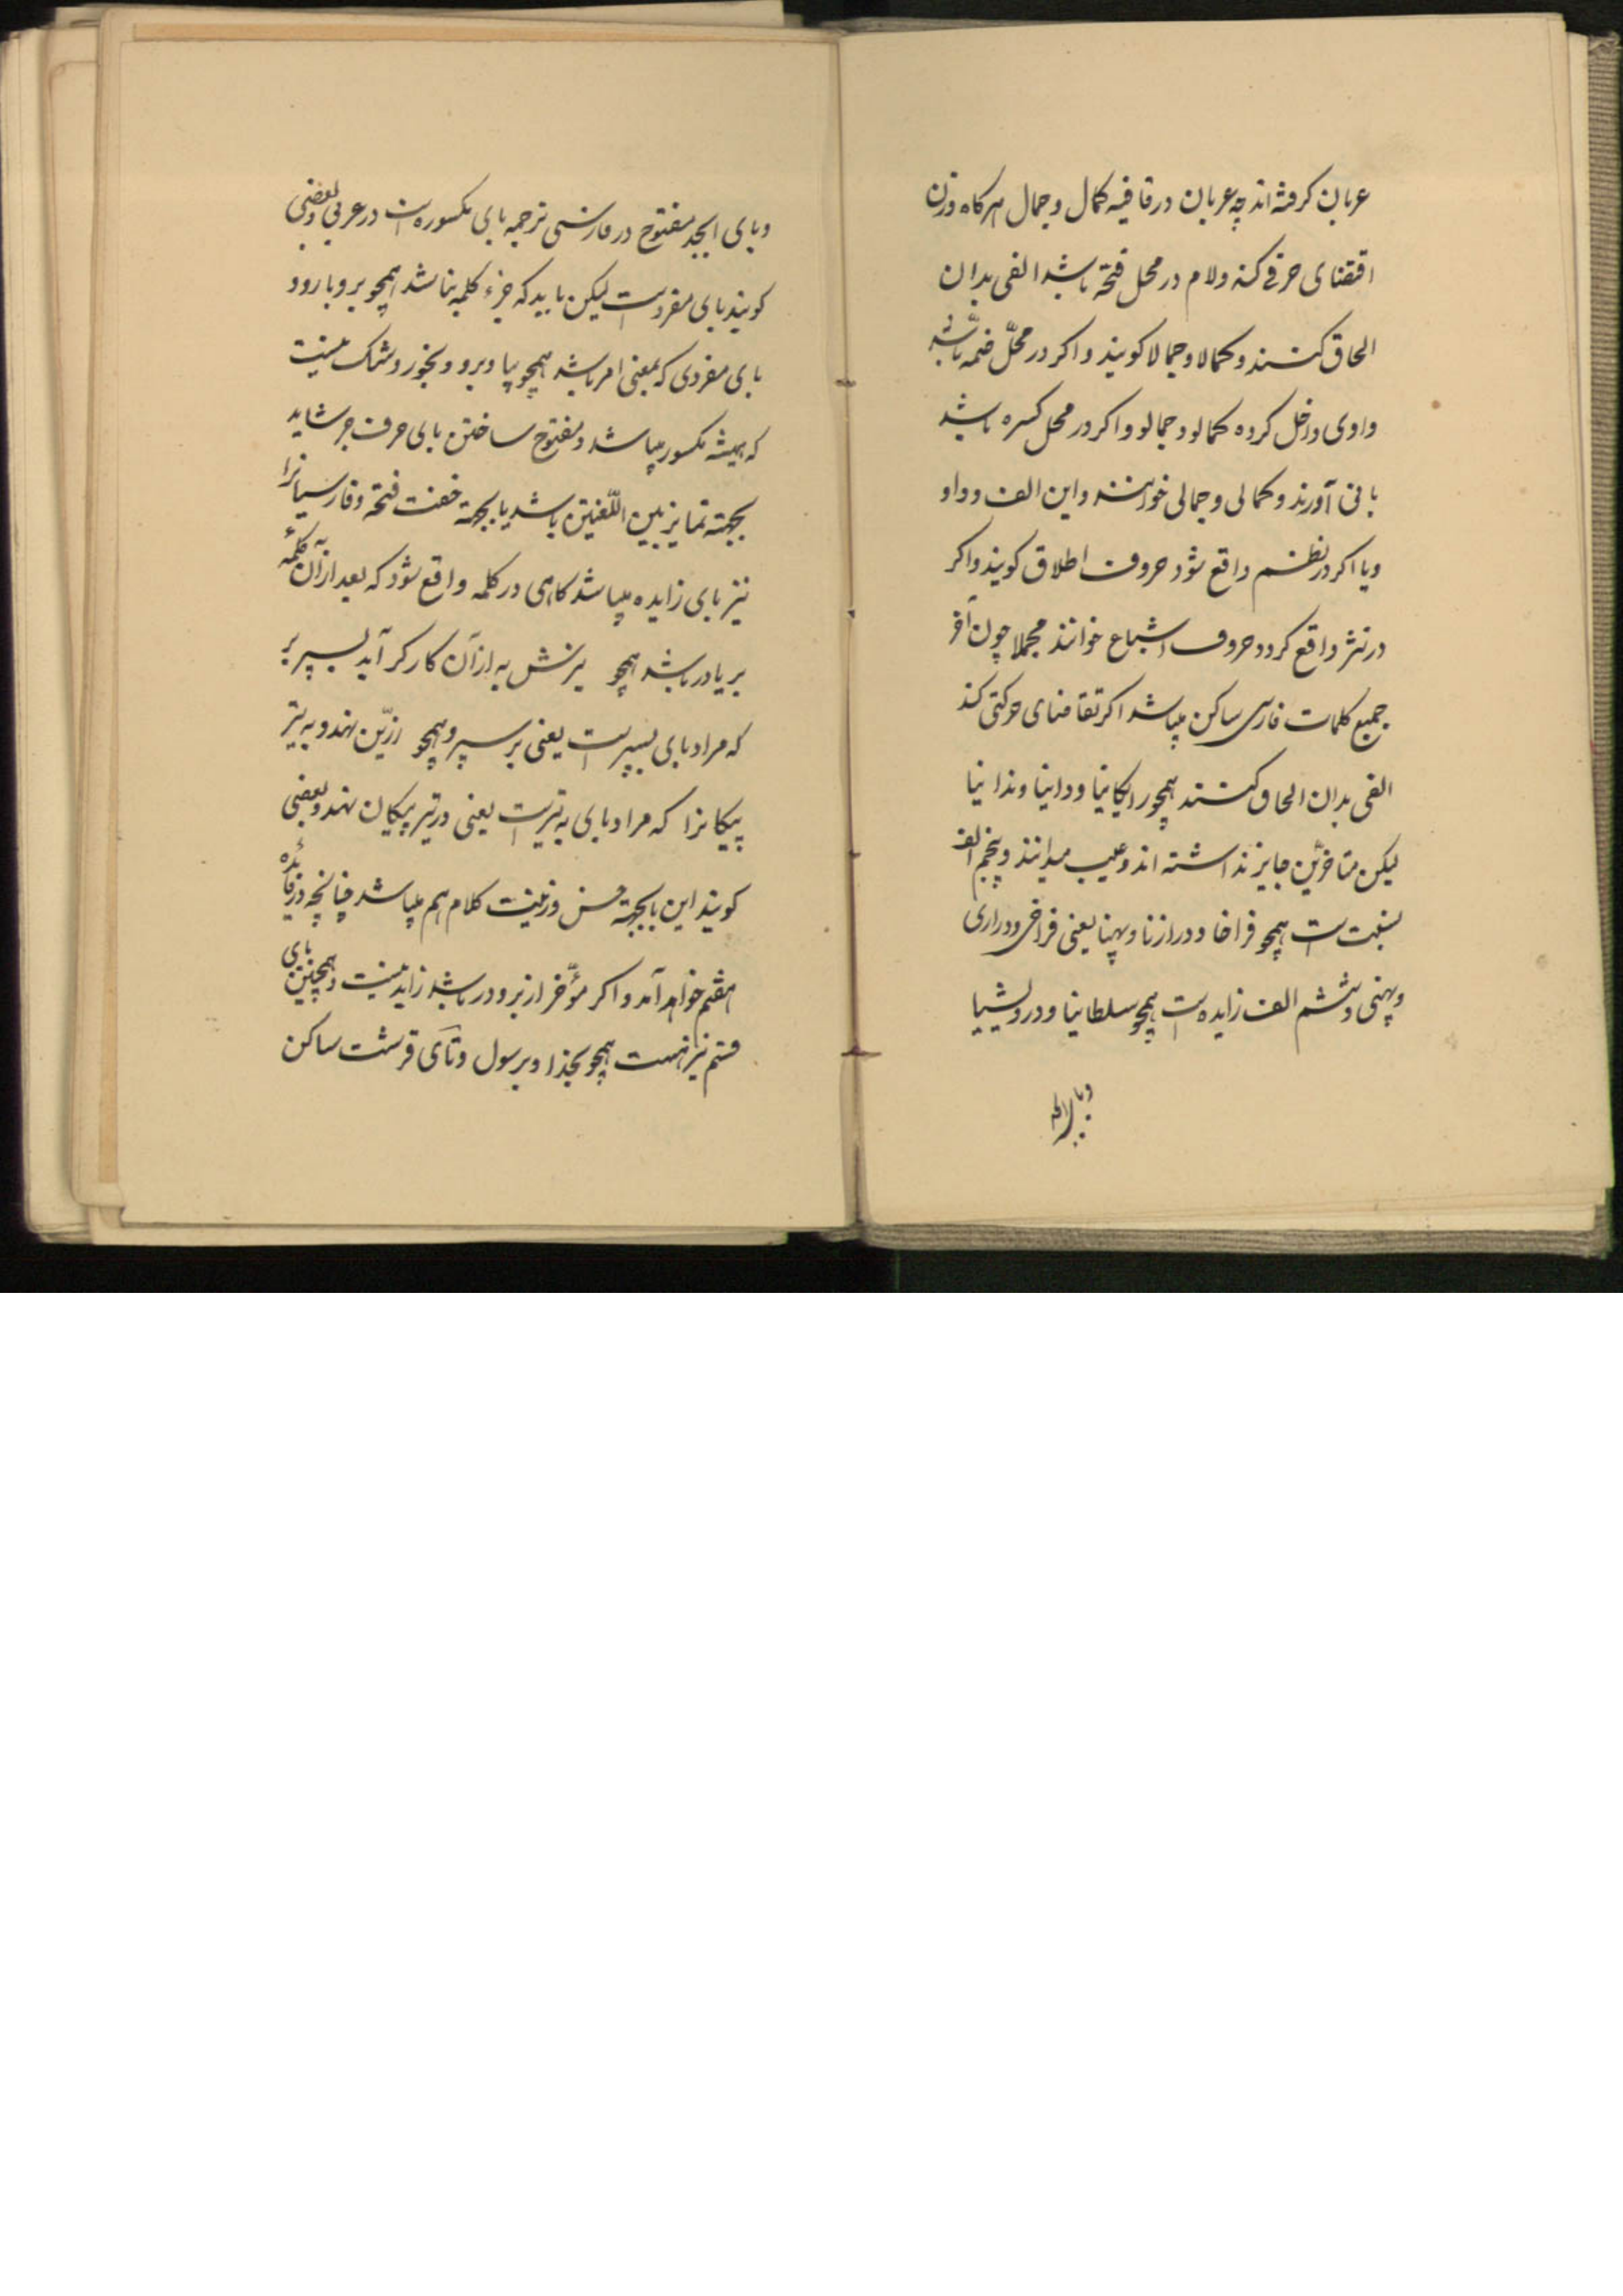 عربان کرفته اند چه عربان در قافیه کمال و جمال هر کاه وزن
اقتضای حرفی کند و لام در محل فتحه باشد الفی بدان
الحاق کنند و کمالا و جمالا کویند و اکر در محلّ ضمه باشد
واوی داخل کرده کمالو و جمالو و اکر در محل کسره باشد
یائی آورند و کمالی و جمالی خوانند و این الف و واو
و یا اکر در نظم واقع شود حروف اطلاق کویند و اکر
در نثر واقع کردد حروف اشباع خوانند مجملا چون آخر
جمیع کلمات فارسی ساکن میباشد اکر تقاضای حرکتی کند
الفی بدان الحاق کنند همچو رایکانیا و دانیا و ندانیا
لیکن متاخرّین جایز نداشته اند و عیب میدانند و پنجم الف
نسبت است همچو فراخا و درازنا و پهنا یعنی فراخی و درازی
و پهنی و ششم الف زایده است همچو سلطانیا و درویشیا
و بای ابجد
و بای ابجد مفتوح در فارسی ترجمه بای مکسوره است در عربی و بعضی
کویند بای مفردست لیکن باید که جزء کلمه نباشد همچو برو بارو و
بای مفردی که بمعنی امر باشد همچو بیا و برو و بخور و شک نیست
که همیشه مکسور میباشد و مفتوح ساختن بای حرف جر شاید
بجهته تمایز بین اللّغتین باشد یا بجهة خفت فتحه و فارسیانرا
نیز بای زایده میباشد کاهی در کلمه واقع شود که بعد از آن کلمهٔ
بر یا در باشد همچو یزنش به از آن کارکر آید بسپر بر
که مراد بای بسپرست یعنی بر سپر و همچو رزیّن نهند و به تیر
پیکانرا که مراد بای به تیرست یعنی در تیر پیکان نهند و بعضی
کویند این با بجهته حسن و زینت کلام هم میباشد چنانچه در فائده
هفتم خواهد آمد و اکر مؤخر از بر و در باشد زاید نیست و همچنین بای
قسم نیز هست همچو بخذا و برسول و تآی قرشت ساکن